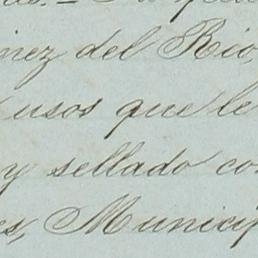 nez del Rio,
usos que le
y sellado co
es, Municip